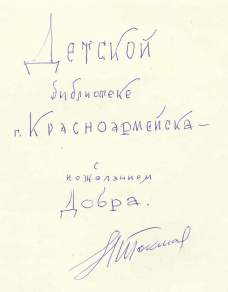 Детской
библиотеке
г. Красноармейска —
с
пожеланием
Добра.